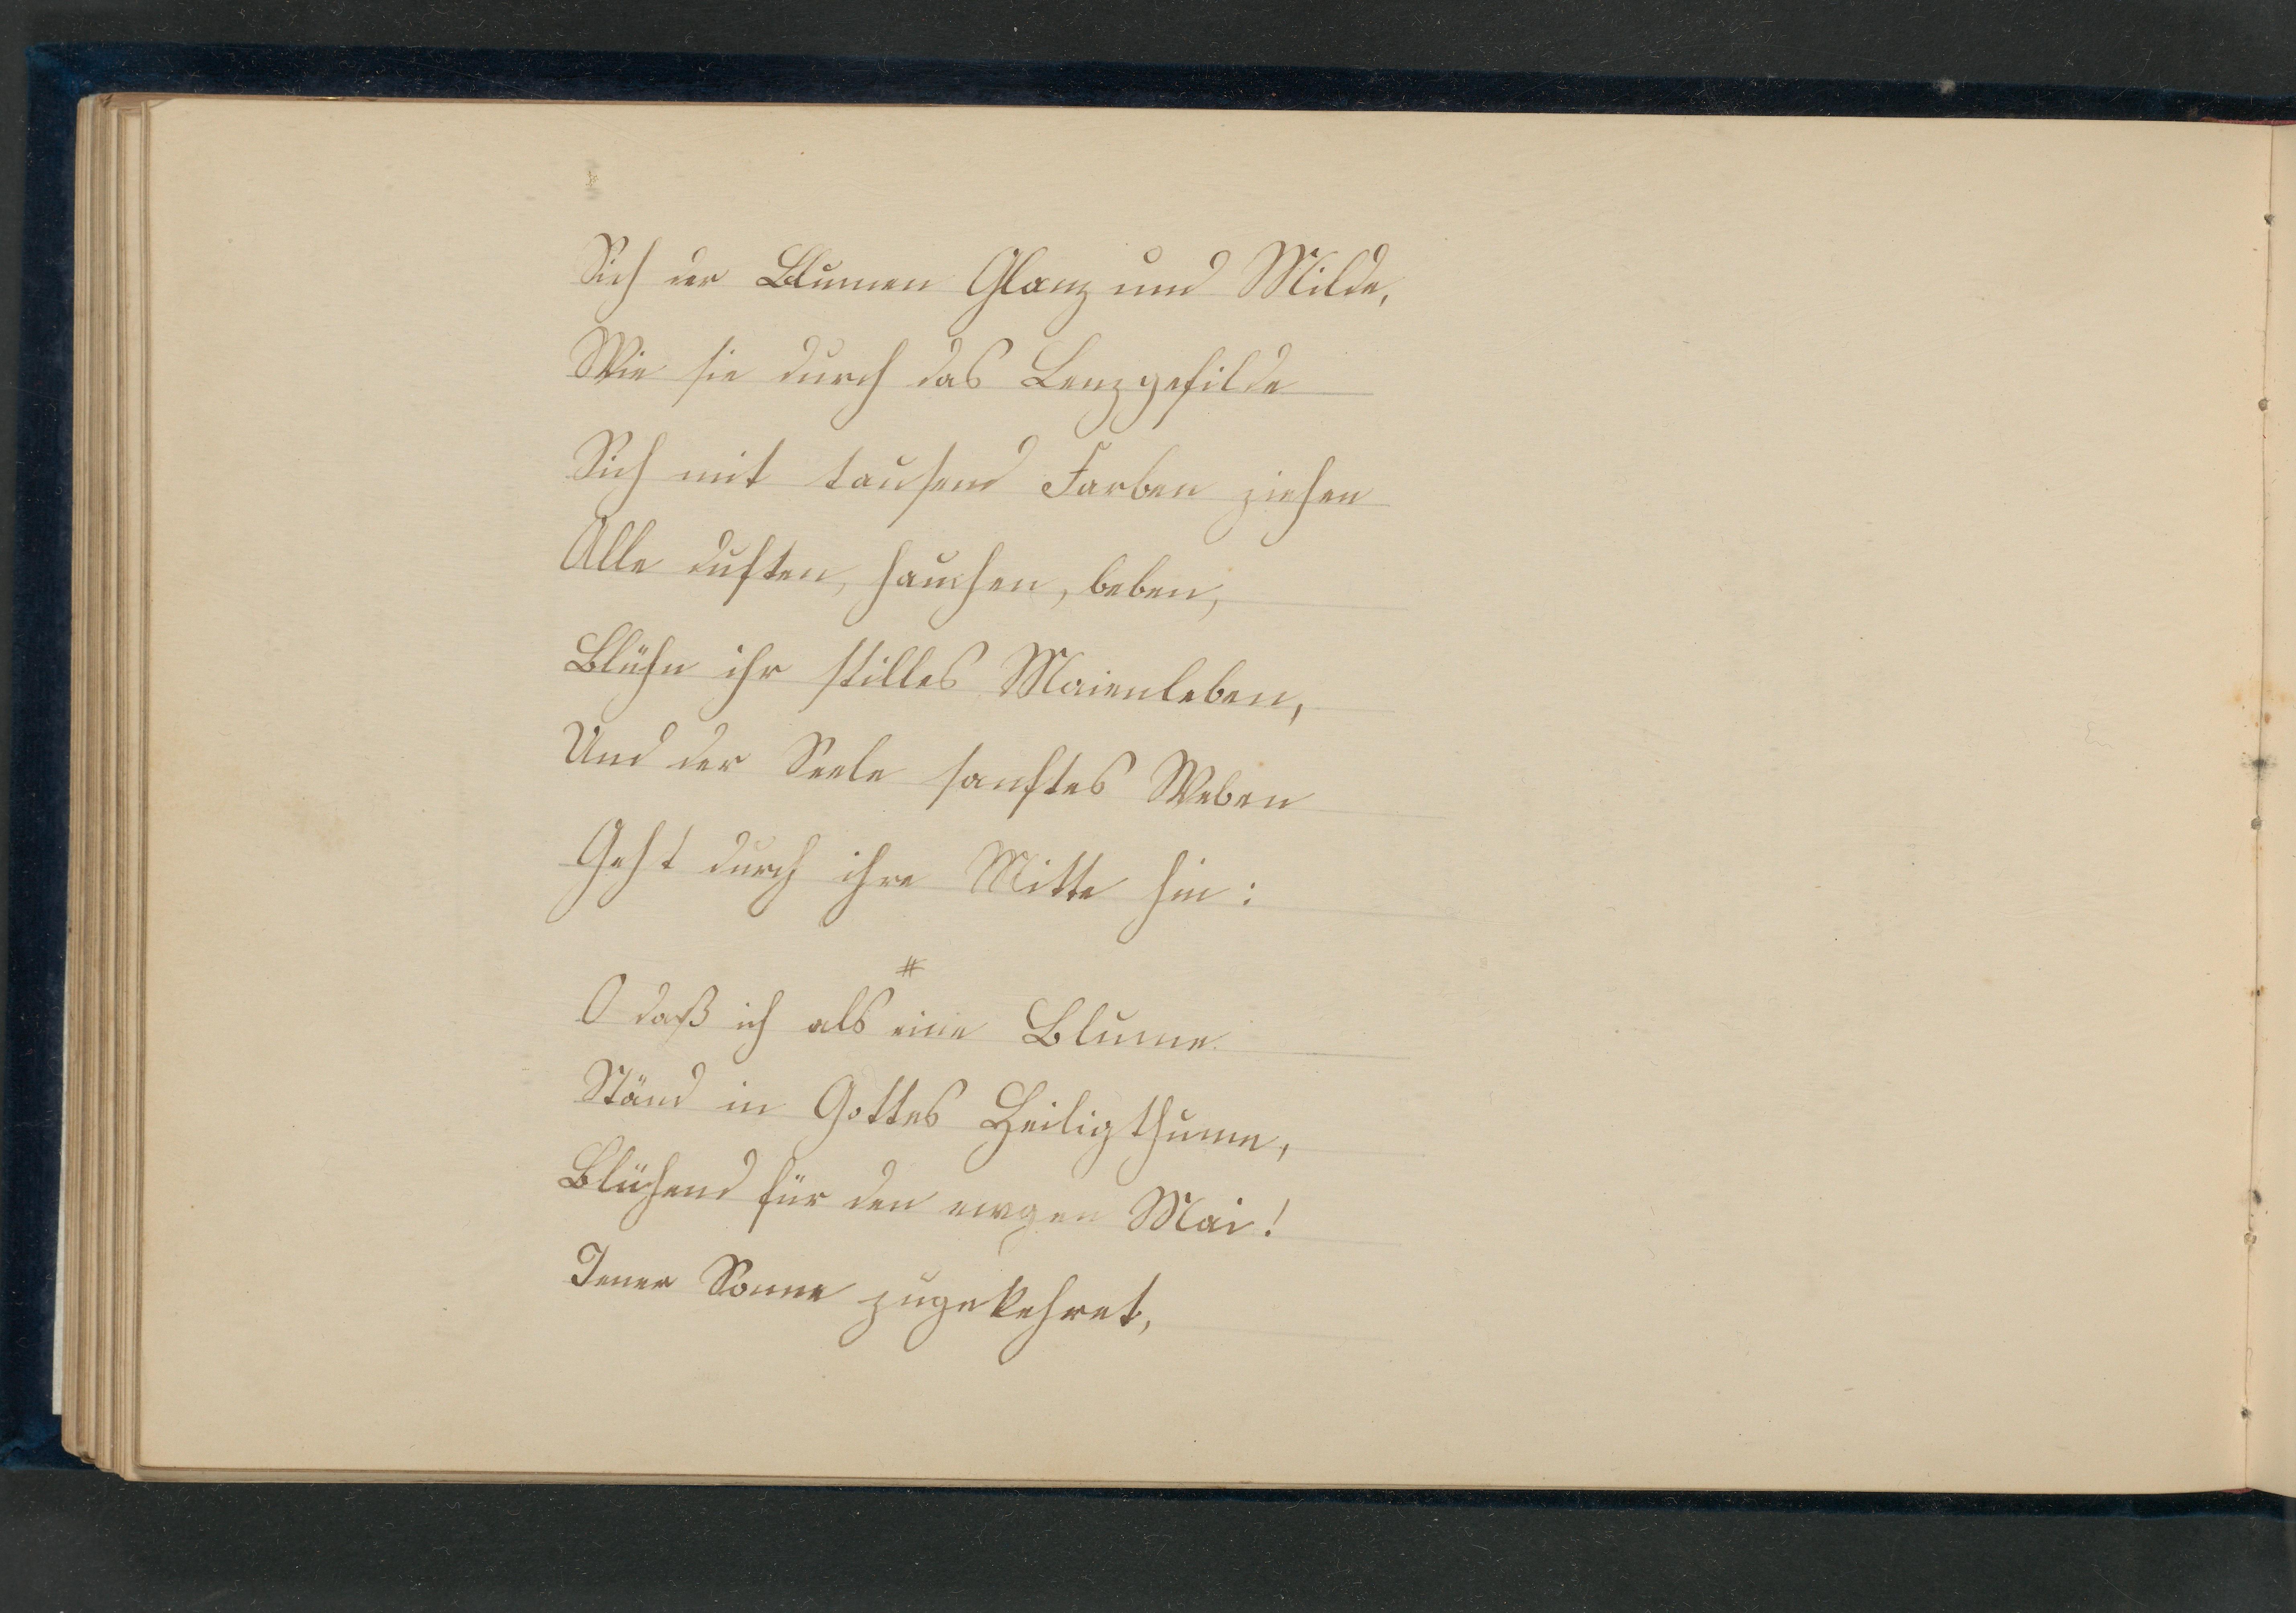 Sieh der Blumen Glanz und Milde,
Wie sie durch das Lenzgefilde
Sich mit tausend Farben ziehen
Alle duften, hauchen, beben,
Blühn ihr stilles Maienleben,
Und der Seele sanftes Weben
Geht durch ihre Mitte hin:
#
O daß ich als eine Blume
Ständ in Gottes Heiligthume,
Blühend für den ewgen Mai!
Jener Sonne zugekehret,